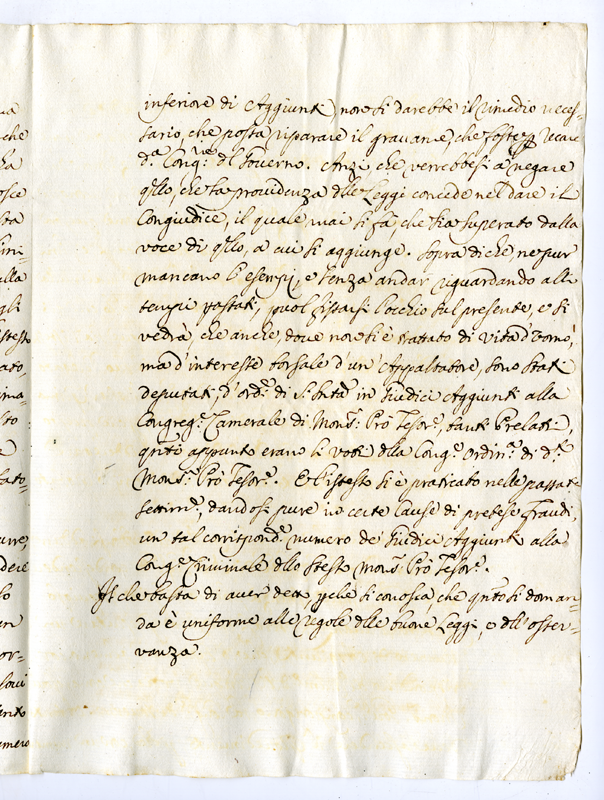 inferiore di Aggiunti, non si darebbe il rimedio neces-
sario, che possa riparare il gravame, che fosse p recare
d.a Cong.ne del Governo. Anzi, che verrebbesi a negare
q.llo, che la providenza delle Leggi concede nel dare il
Congiudice, il quale mai si fà, che sia superato dalla
voce di q.llo, a cui si aggiunge. Sopra di che, ne pur
mancano li esempi, e senza andar riguardando alli
tempi passati, puol fissarsi l'occhio sul presente, e si
vedrà, che anche, dove non si è trattato di vita d'Uomo,
ma d'interesse borsale d'un Appaltatore, sono stati
deputati, d'ord.e di S. Stà in Giudici Aggiunti alla
Congreg.e Camerale di Mons.r Pro Tesor.e, tanti Prelati,
q.nti appunto erano li voti della Cong.e ordin.a di d.o
Mons.r Pro Tesor.e. E l'istesso si è praticato nelle passate
settim.e, dandosi pure in certe Cause di pretese fraudi,
un tal corrispond.e numero de' Giudici Aggiunti alla
Cong.e Criminale dello stesso Mons.r Pro Tesor.e.
Il che basta di aver detto, p che si conosca, che q.nto si doman-
da è uniforme alle regole delle buone Leggi, e dell' osser-
vanza.